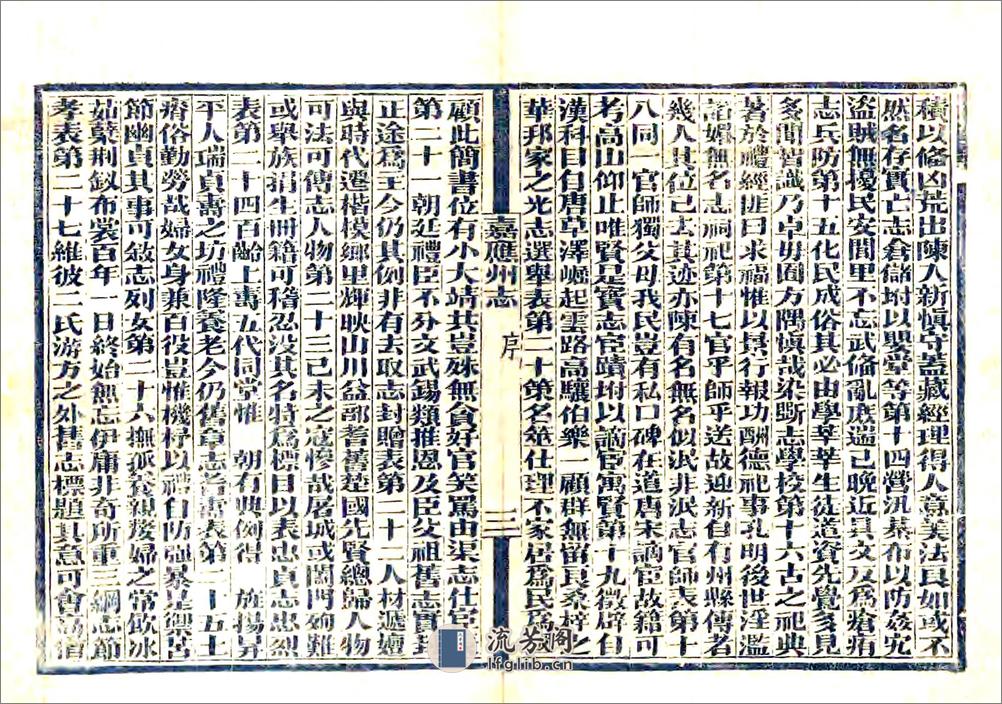 積以備凶荒出陳入新愼守蓋藏經理得人意美法良如或不
然名存實亡志倉儲附以嬰堂等第十四營汛棊布以防姦宄
盜賊無擾民安閭里不忘武備亂庶遄已晚近具文反爲瘡痏
志兵防第十五化民成俗其必由學莘莘生徒道資先覺多見
多聞智識乃卓毋囿方隅愼哉染斲志學校第十六古之祀典
畧於禮經匪曰求福惟以景行報功酬德祀事孔明後世淫濫
諂媚無名志祠祀第十七官乎師乎送故迎新自有州縣傳者
幾人其位已去其迹亦陳有名無名似泯非泯志官師表第十
八同一官師獨父母我民豈有私口碑在道唐宋謫官故籍可
考高山仰止唯賢是寶志宦蹟坿以謫宦寓賢第十九徵辟自
漢科目自唐草澤崛起雲路高驤伯樂一顧群無留良桑梓之
華邦家之光志選舉表第二十策名筮仕理不家居爲民爲
嘉應州志
序
三
顧此簡書位有小大靖共豈殊無貪好官笑罵由渠志仕宦
第二十一朝廷禮臣不分文武錫類推恩及臣父祖舊志實
正途爲主今仍其例非有去取志封贈表第二十二人材遞嬗
與時代遷楷模鄉里輝映山川益部耆舊楚國先賢總歸人物
可法可傳志人物第二十三己未之寇慘哉屠城或闔門殉難
或舉族捐生冊籍可稽忍沒其名特爲標目以表忠貞志忠烈
表第二十四百齡上壽五代同堂惟 朝有典例得 旌揚昇
平人瑞貞壽之坊禮隆養老今仍舊章志耆壽表第二十五士
瘠俗勤勞哉婦女身兼百役豈惟機杼以禮自防强暴是禦苦
節幽貞其事可敘志列女第二十六撫孤養親嫠婦之常飲冰
茹蘗荆釵布裳百年一日終始無忘伊庸非奇所重三綱志節
孝表第二十七維彼二氏游方之外舊志標題具意可會
流芳阁
lfglib.cn